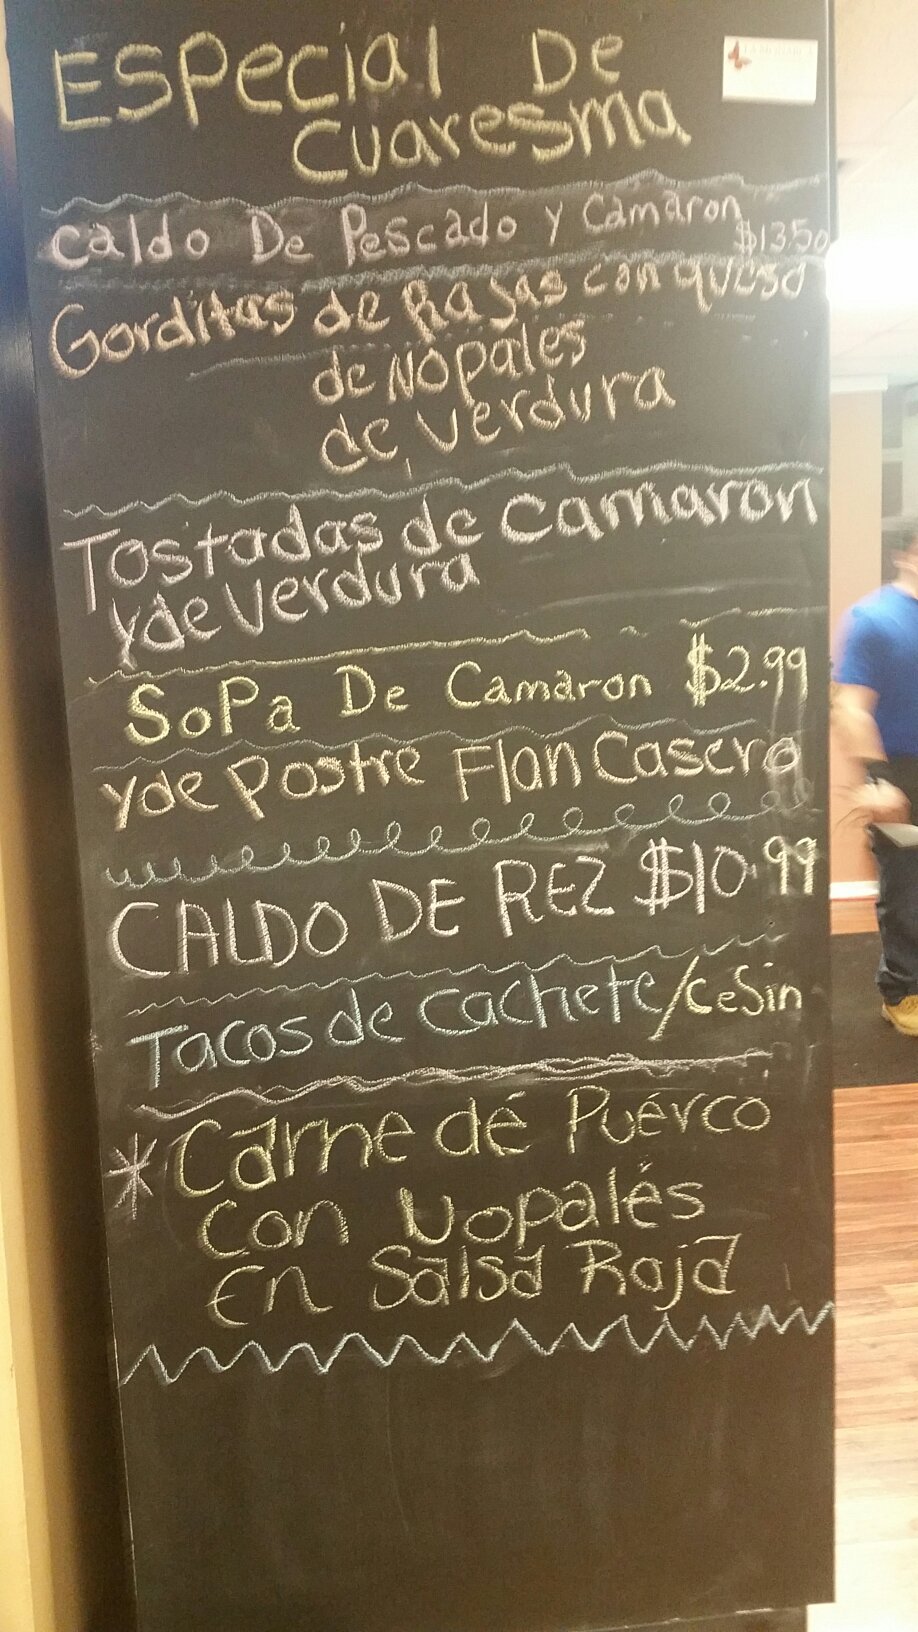 ESPecial De
Cuaresma
Caldo De Pescado y Camaron
$13.50
Gorditas de Rajas con queso
de Nopales
de Verdura
Tostadas de Camaron
y de Verdura
SoPa De Camaron $2.99
y de Postre Flan Casero
CALDO DE REZ $10.99
Tacos de Cachete/Cesin
*Carne dé Puérco
Con Nopalés
En Salsa Roja